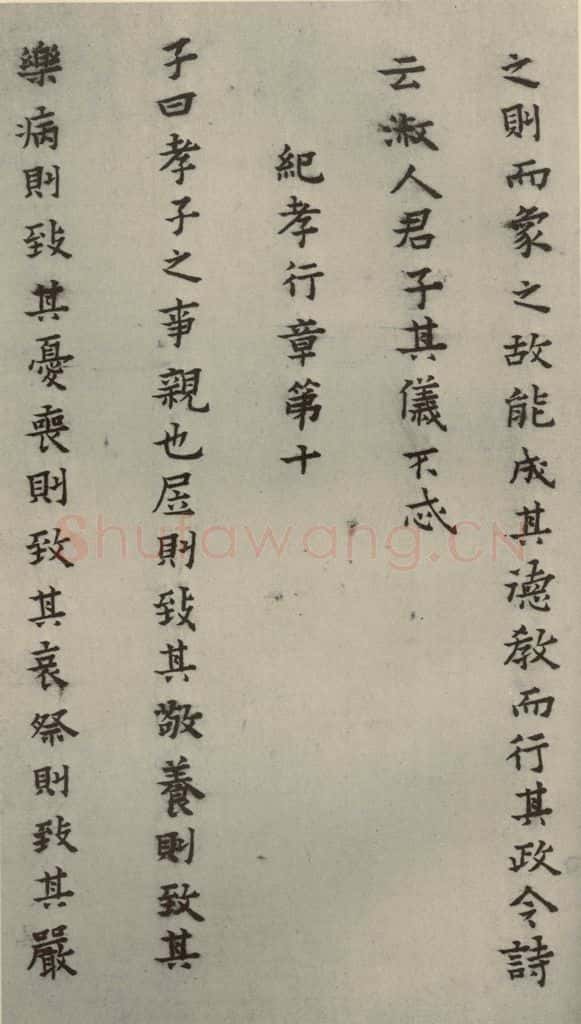 之則而象之故能成其德教而行其政令詩
云淑人君子其儀不忒
紀孝行章第十
子曰孝子之事親也居則致其敬養則致其
樂病則致其憂喪則致其哀祭則致其嚴
Shufawang.CN